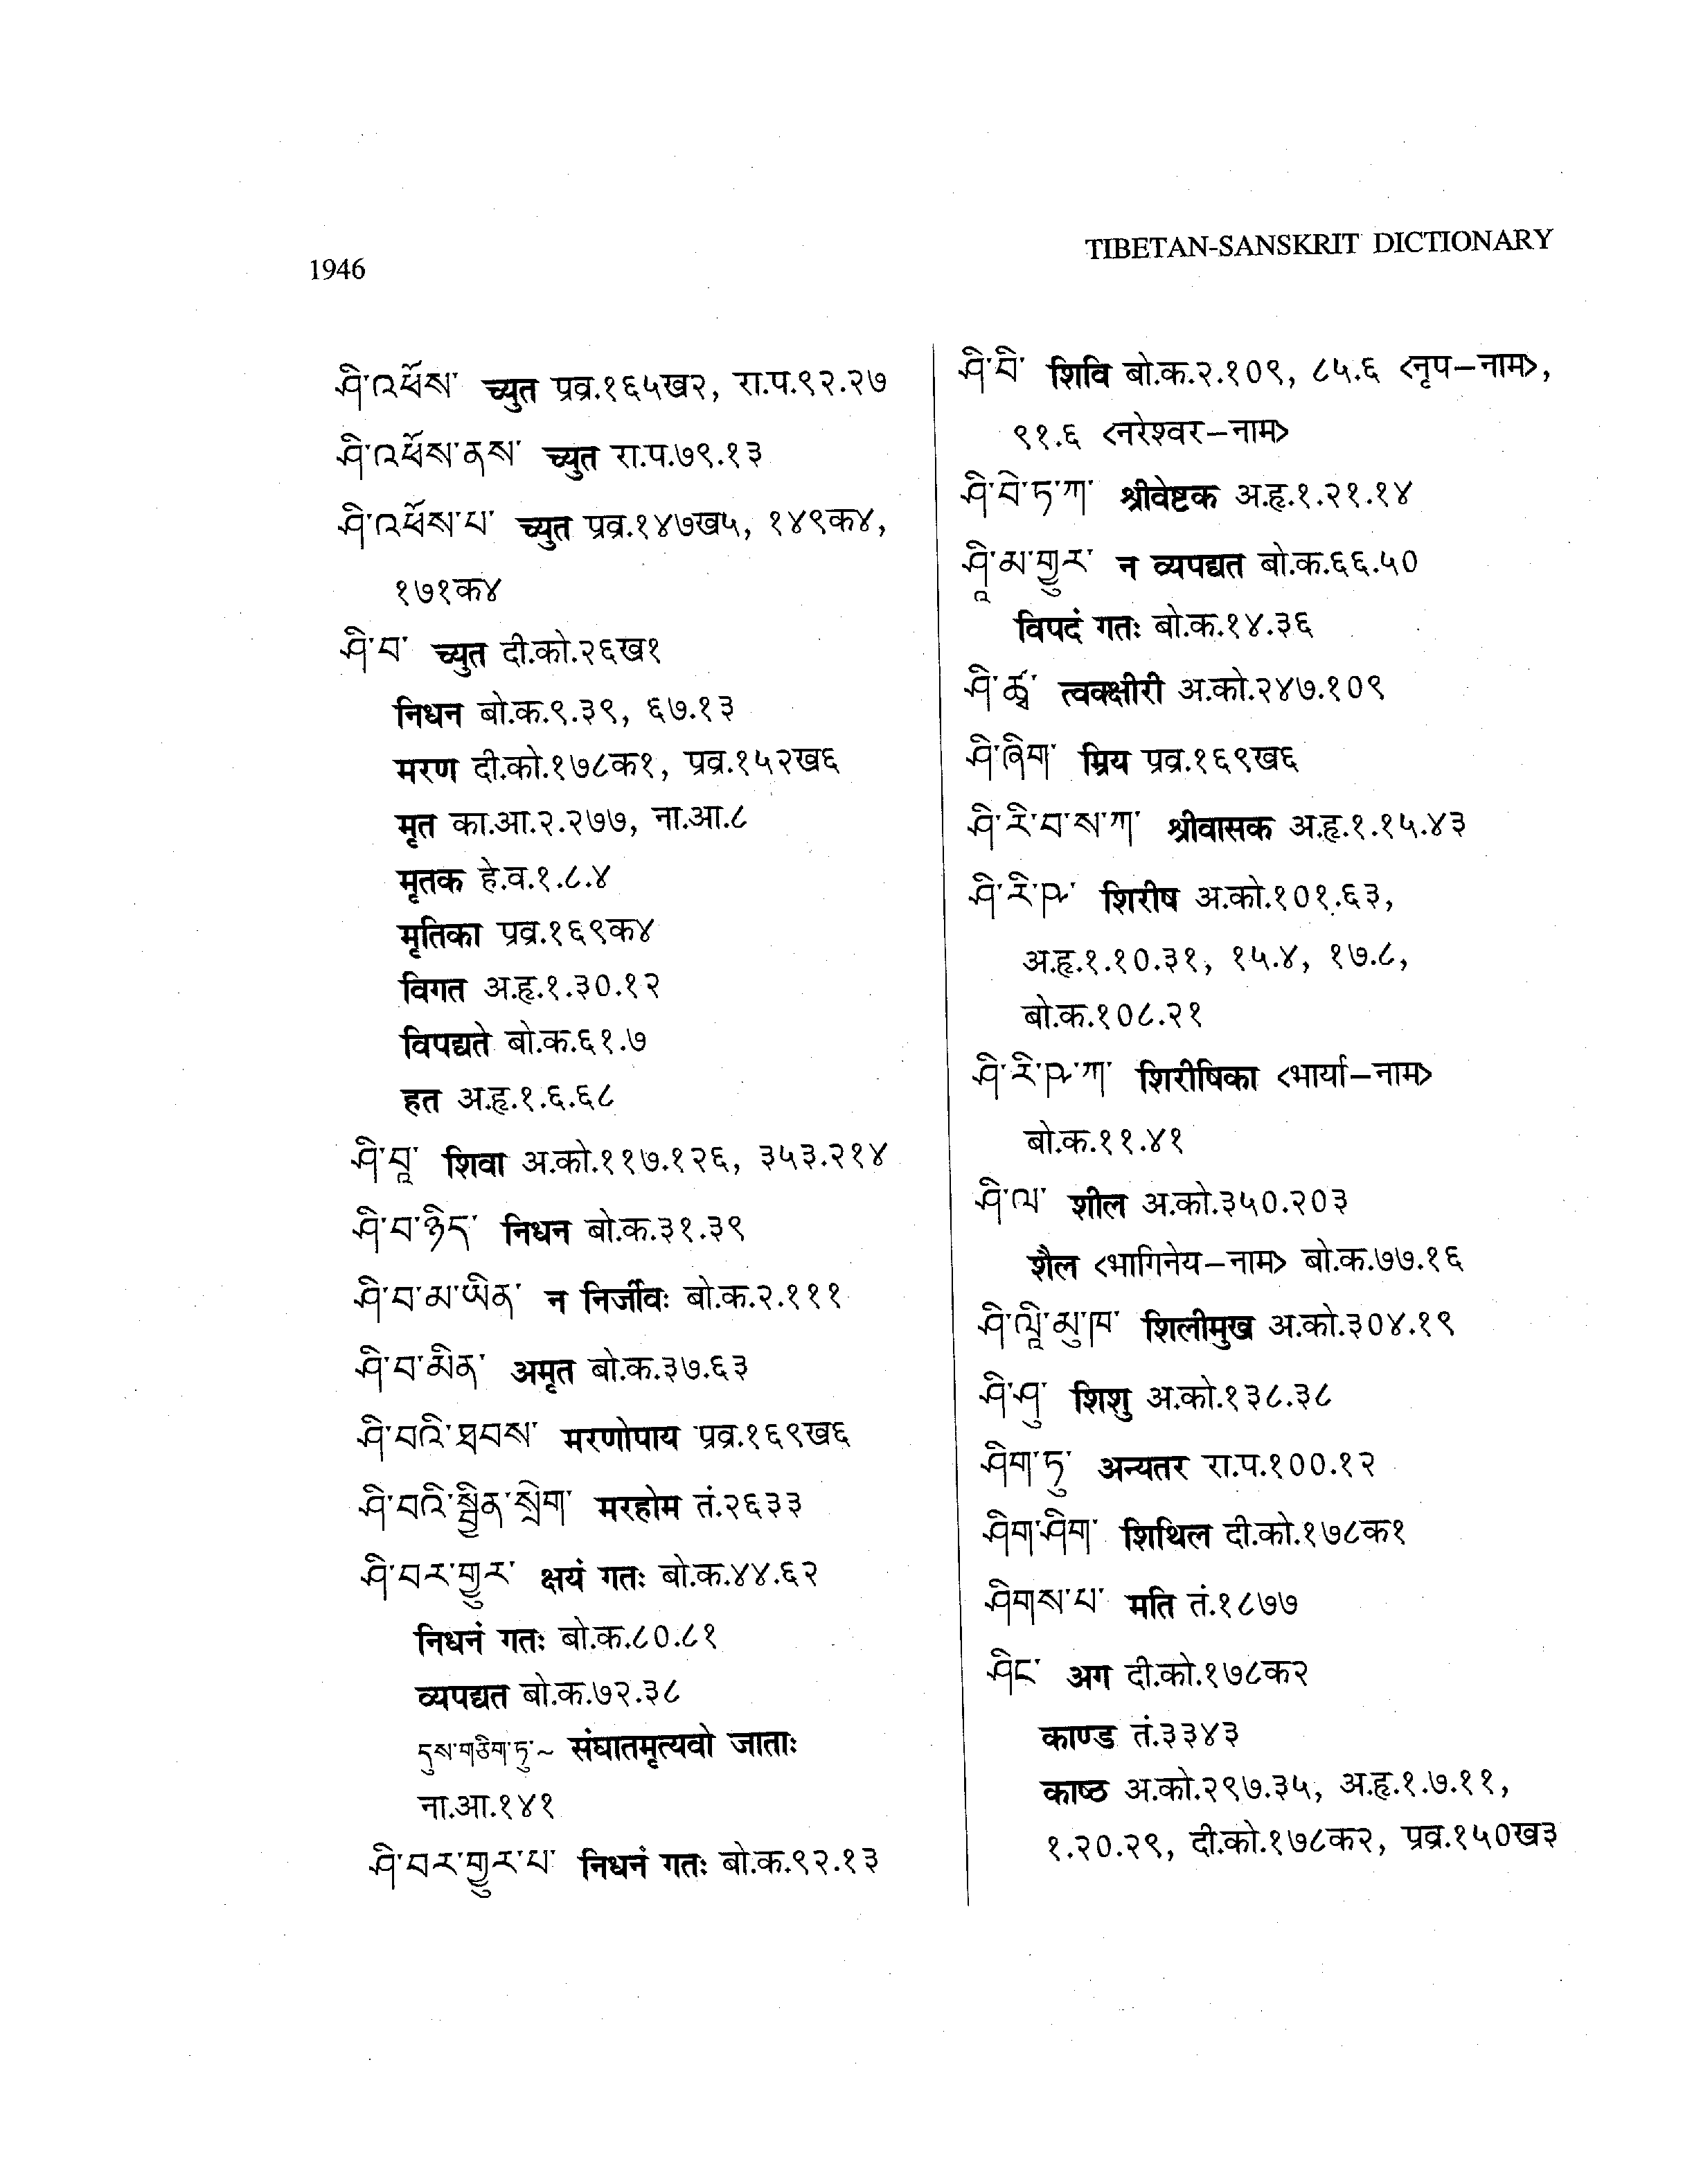 1946
TIBETAN-SANSKRIT DICTIONARY
ཤི་འཕོས་ च्युत प्रव्र.१६५ख२, रा.प.९२.२७
ཤི་འཕོས་ནས་ च्युत रा.प.७९.१३
ཤི་འཕོས་པ་ च्युत प्रव्र.१४७ख५, १४९क४,
१७१क४
ཤི་བ་ च्युत दी.को.२६ख१
निधन बो.क.९.३९, ६७.१३
मरण दी.को.१७८क१, प्रव्र.१५२ख६
मृत का.आ.२.२७७, ना.आ.८
मृतक हे.व.१.८.४
मृतिका प्रव्र.१६९क४
विगत अ.हृ.१.३०.१२
विपद्यते बो.क.६१.७
हत अ.हृ.१.६.६८
ཤི་བཱ་ शिवा अ.को.११७.१२६, ३५३.२१४
ཤི་བ་ཉིད་ निधन बो.क.३१.३९
ཤི་བ་མ་ཡིན་ न निर्जीवः बो.क.२.१११
ཤི་བ་མིན་ अमृत बो.क.३७.६३
ཤི་བའི་ཐབས་ मरणोपाय प्रव्र.१६९ख६
ཤི་བའི་སྦྱིན་སྲེག་ मरहोम तं.२६३३
ཤི་བར་གྱུར་ क्षयं गतः बो.क.४४.६२
निधनं गतः बो.क.८०.८१
व्यपद्यत बो.क.७२.३८
དུས་གཅིག་ཏུ་~ संघातमृत्यवो जाताः
ना.आ.१४१
ཤི་བར་གྱུར་པ་ निधनं गतः बो.क.९२.१३
ཤི་བི་ शिवि बो.क.२.१०९, ८५.६ <नृप–नाम>,
९१.६ <नरेश्वर–नाम>
ཤི་བེ་ཏ་ཀ་ श्रीवेष्टक अ.हृ.१.२१.१४
ཤཱི་མ་གྱུར་ न व्यपद्यत बो.क.६६.५०
विपदं गतः बो.क.१४.३६
ཤི་ཚྭ་ त्वक्षीरी अ.को.२४७.१०९
ཤི་ཞིག་ म्रिय प्रव्र.१६९ख६
ཤི་རི་བ་ས་ཀ་ श्रीवासक अ.हृ.१.१५.४३
ཤི་རི་ཥ་ शिरीष अ.को.१०१.६३,
अ.हृ.१.१०.३१, १५.४, १७.८,
बो.क.१०८.२१
ཤི་རི་ཥ་ཀ་ शिरीषिका <भार्या–नाम>
बो.क.११.४१
ཤི་ལ་ शील अ.को.३५०.२०३
शैल <भागिनेय–नाम> बो.क.७७.१६
ཤི་ལཱི་མུ་ཁ་ शिलीमुख अ.को.३०४.१९
ཤི་ཤུ་ शिशु अ.को.१३८.३८
ཤིག་ཏུ་ अन्यतर रा.प.१००.१२
ཤིག་ཤིག་ शिथिल दी.को.१७८क१
ཤིགས་པ་ मति तं.१८७७
ཤིང་ अग दी.को.१७८क२
काण्ड तं.३३४३
काष्ठ अ.को.२९७.३५, अ.हृ.१.७.११,
१.२०.२९, दी.को.१७८क२, प्रव्र.१५०ख३